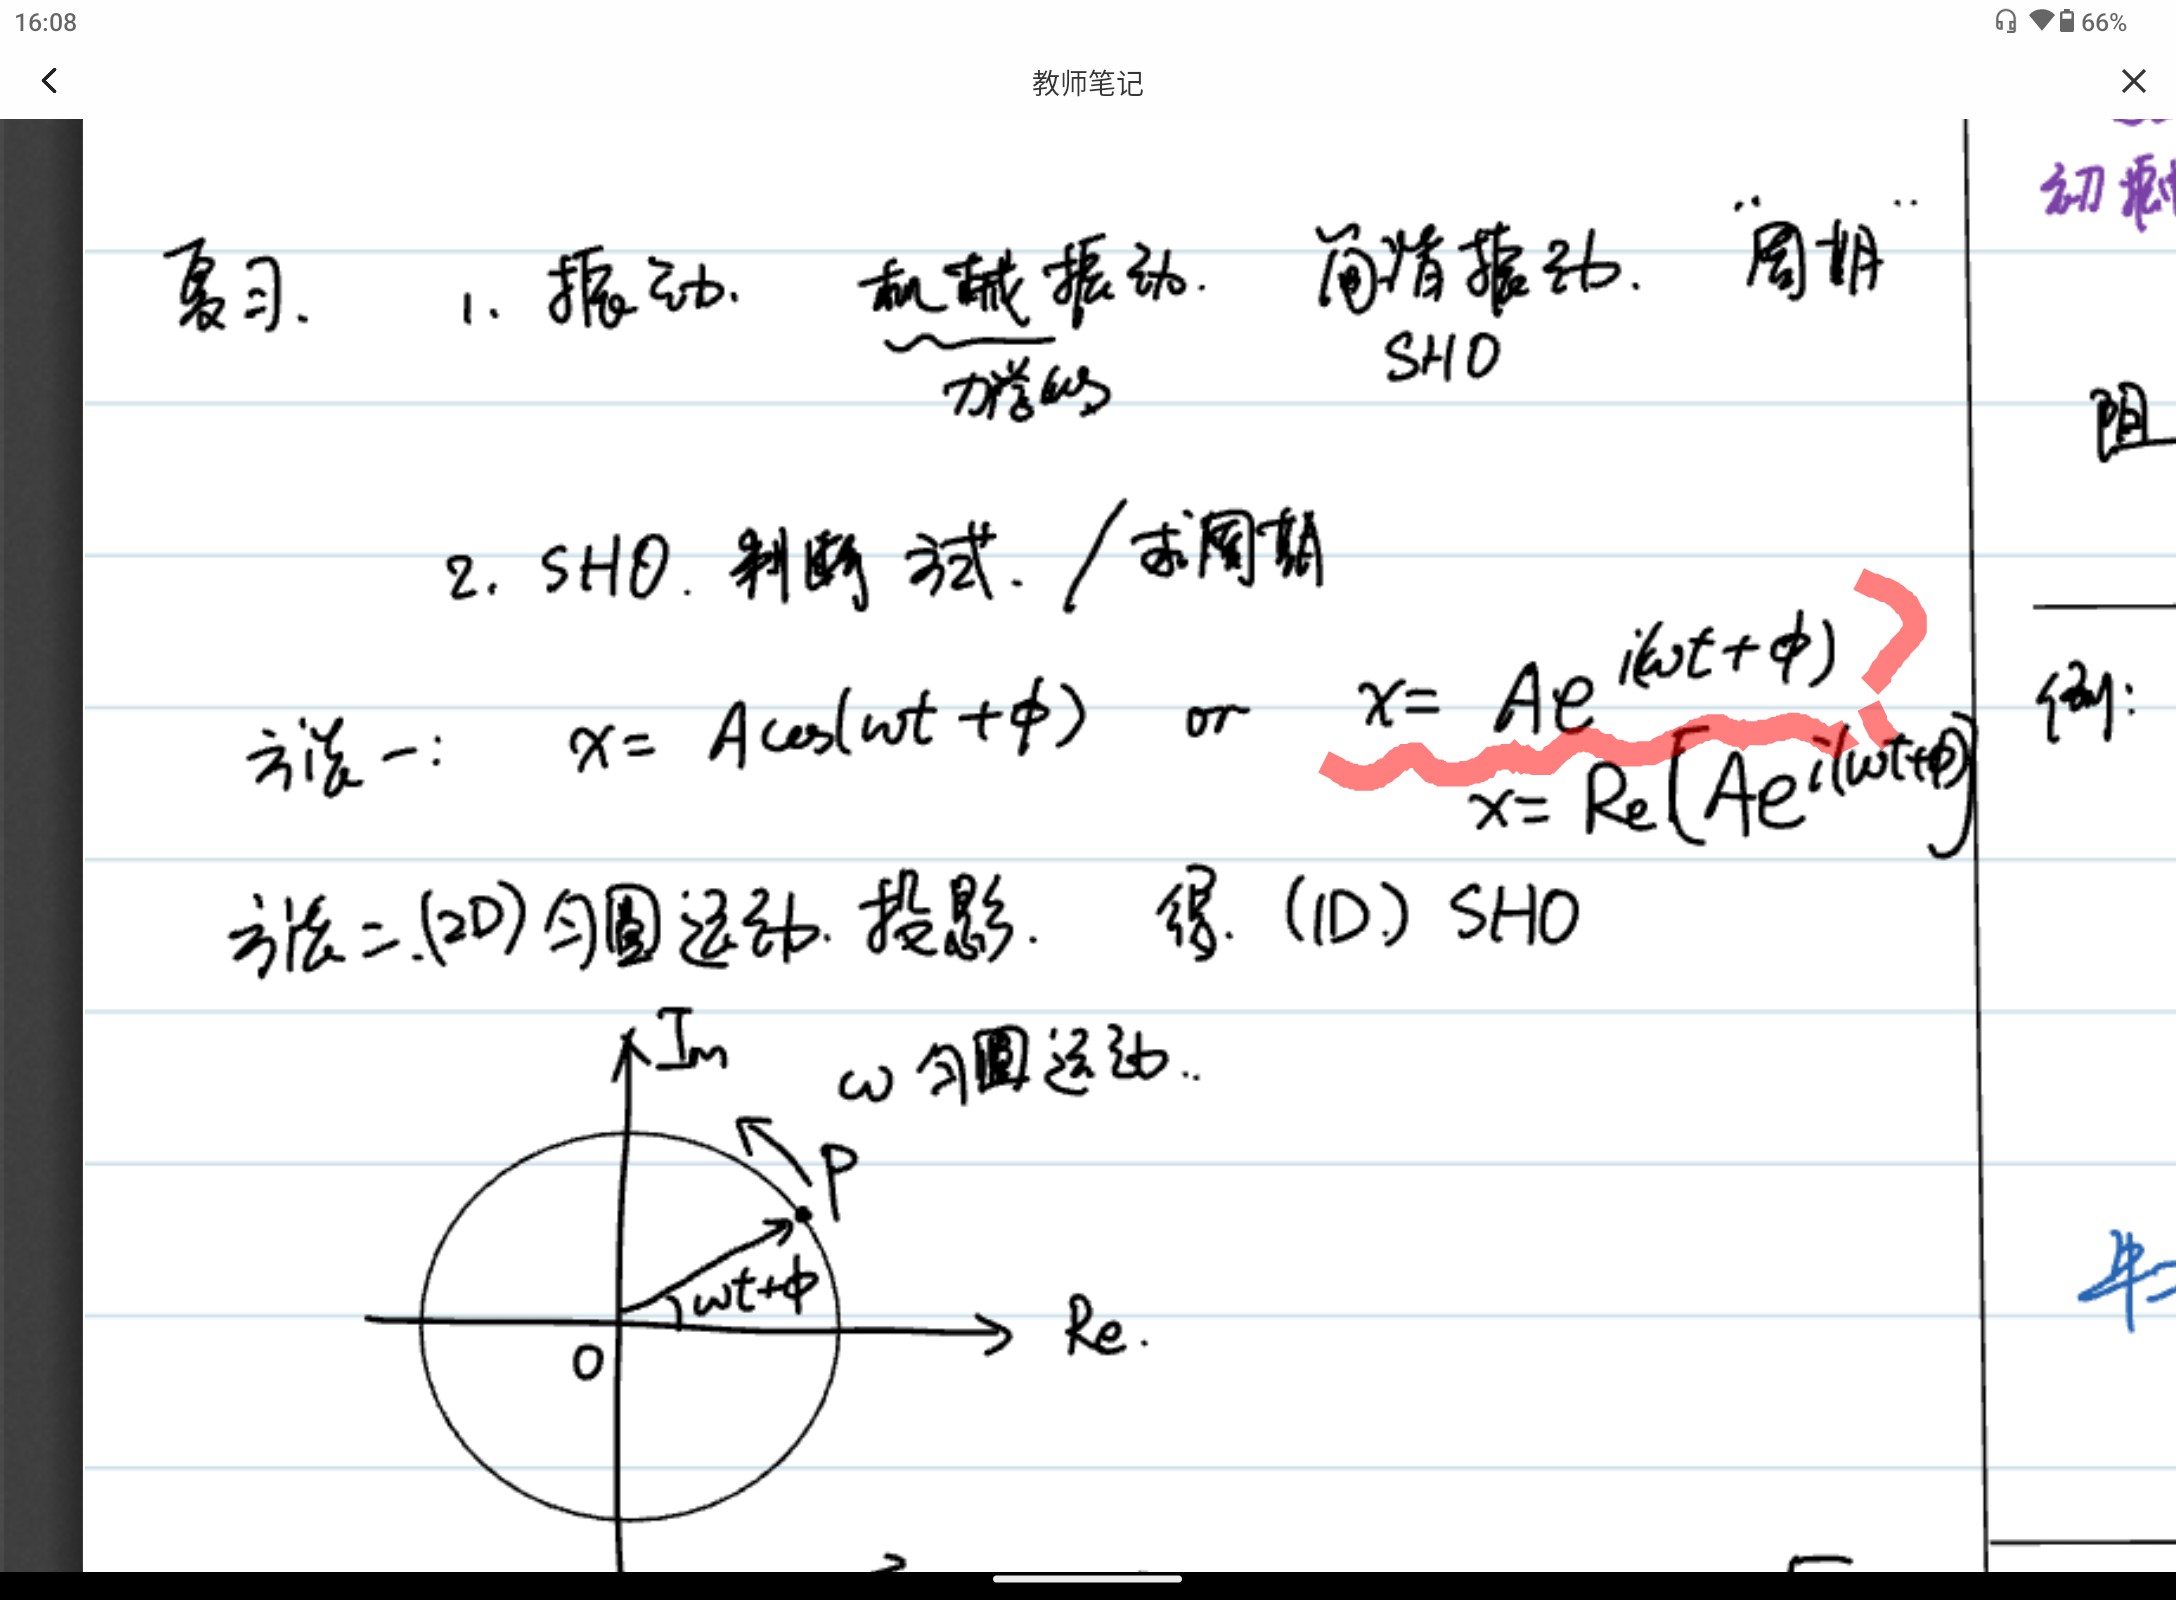 16:08
66%
教师笔记
复习. 1. 振动. 机械振动. 简谐振动. "周期"
力学的 SHO
2. SHO. 判断方式. / 求周期
方法一: x= Acos(ωt+φ) or x= Ae^{i(ωt+φ)} ?
x= Re[Ae^{i(ωt+φ)}]
方法二.(2D) 匀圆运动. 投影. 得. (1D.) SHO
Im
ω 匀圆运动..
P
ωt+φ
O
Re.
阻
例: